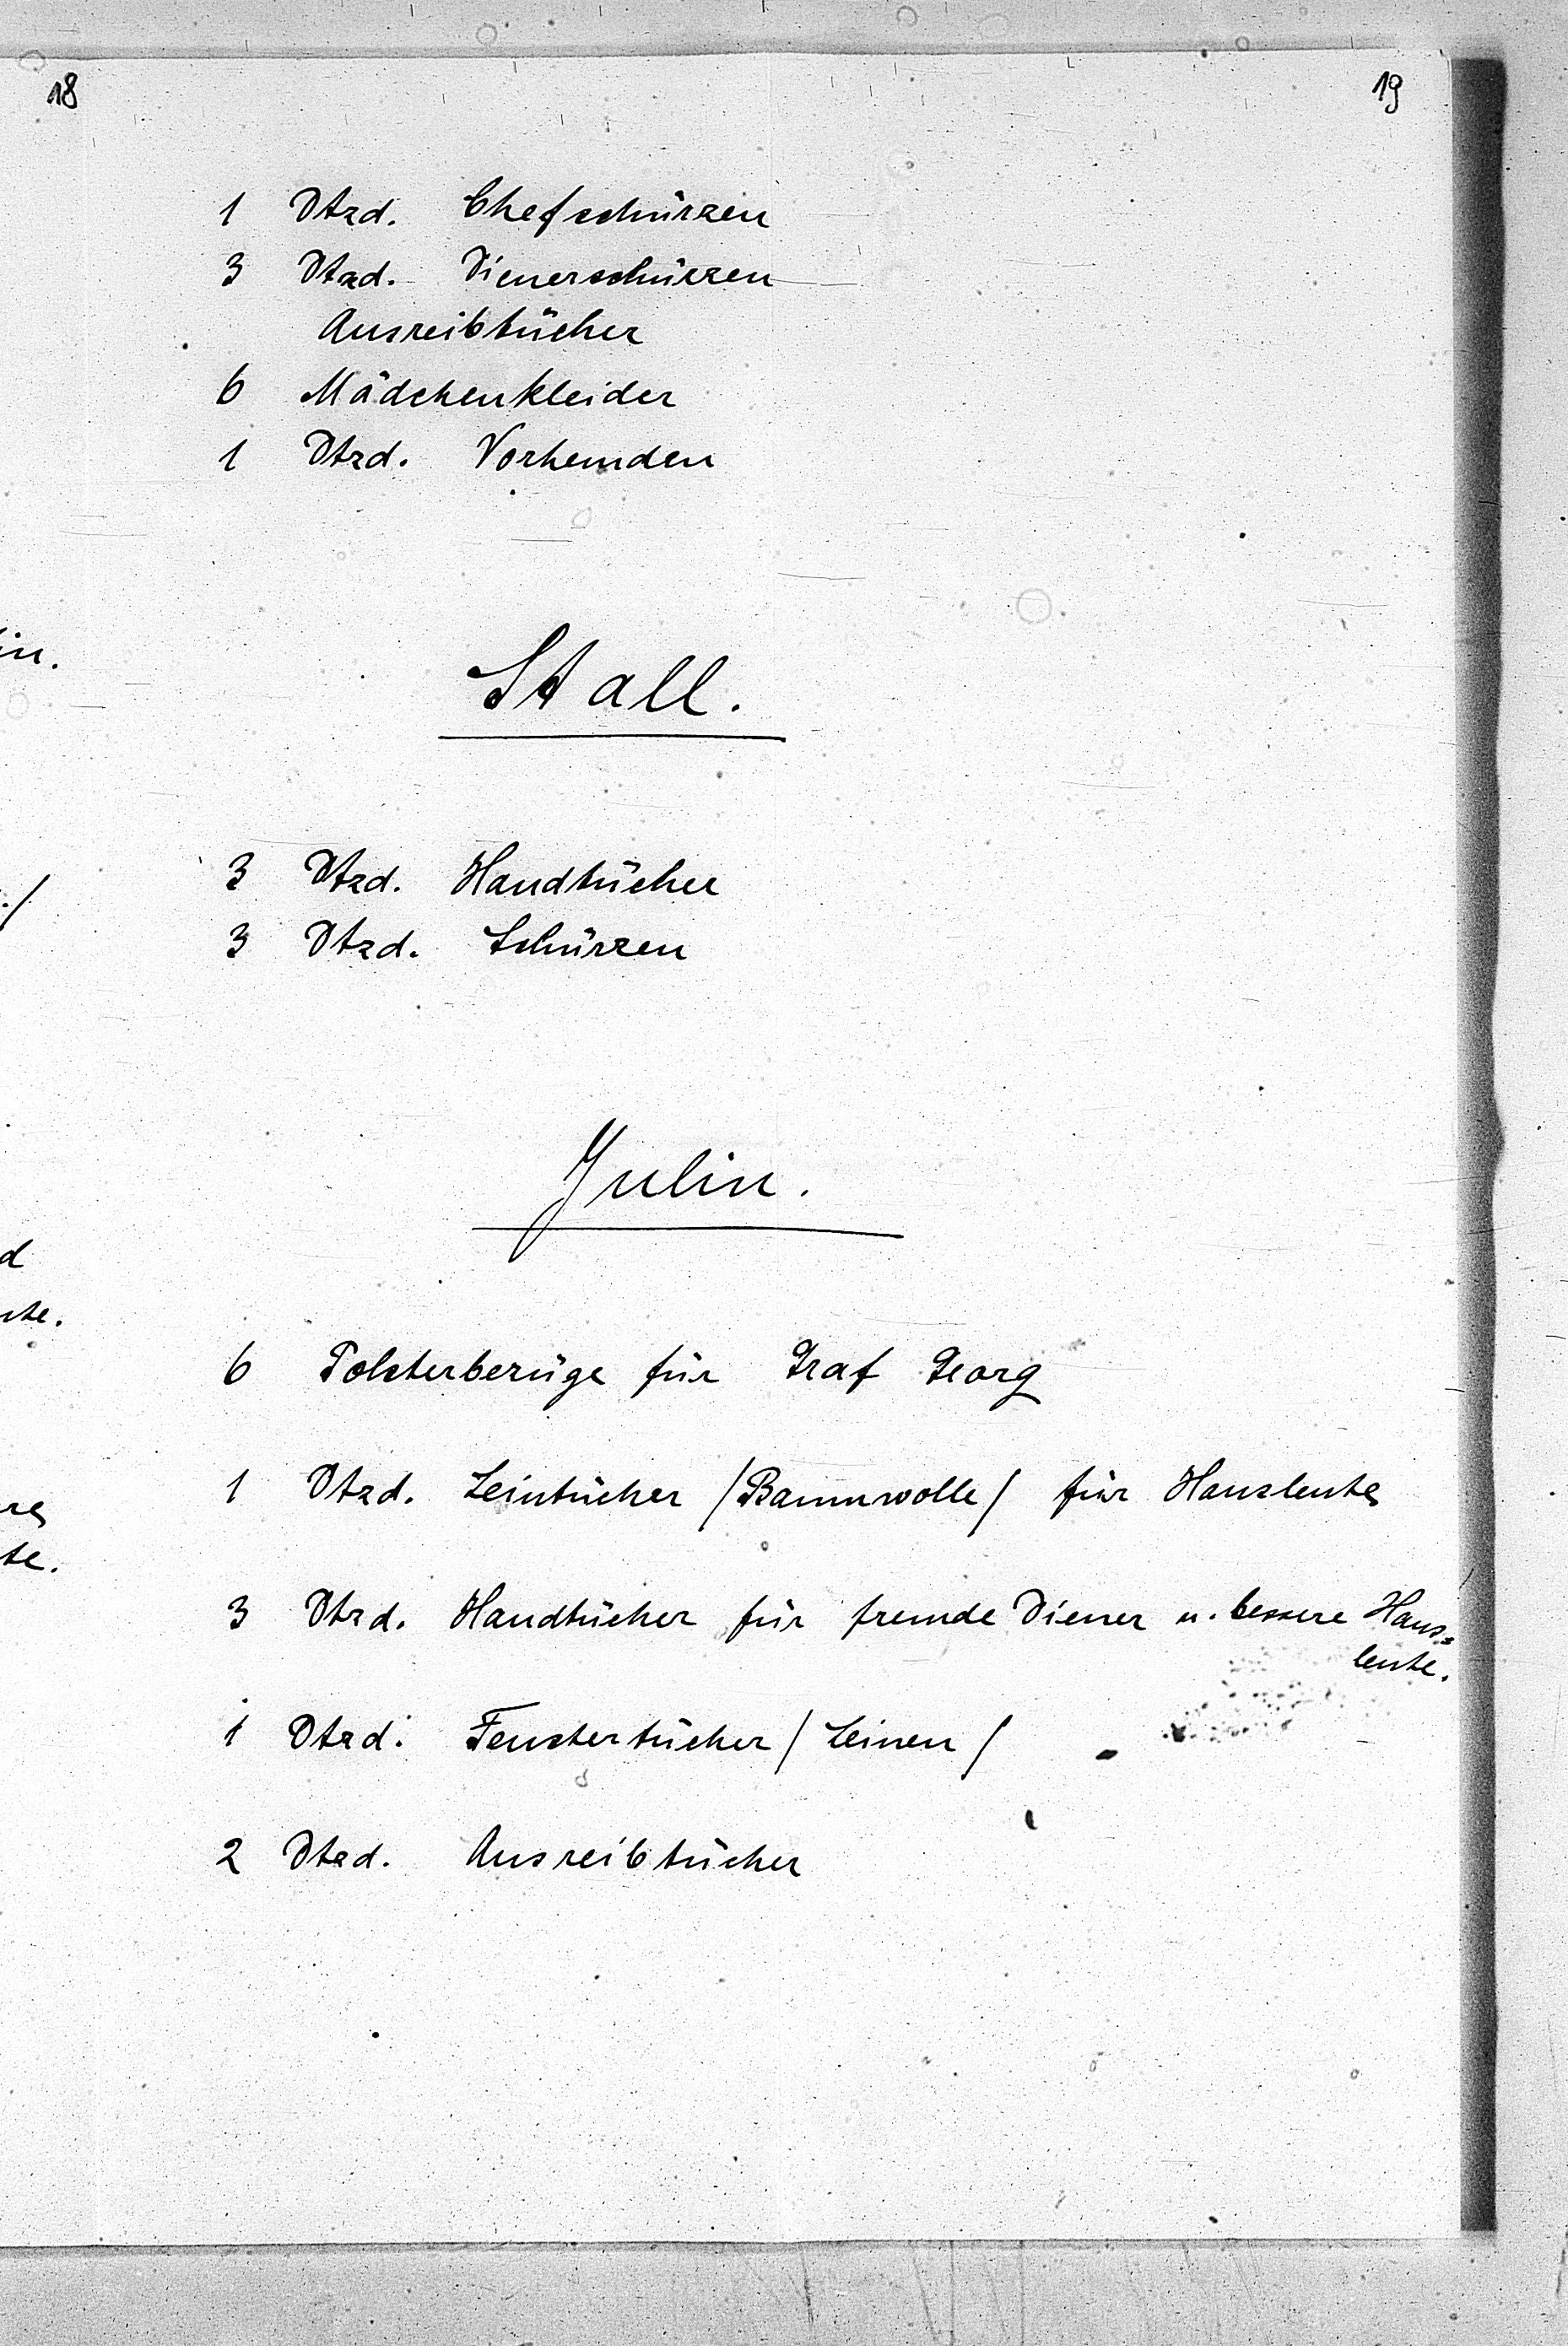 18
19
1 Dtzd. Chefschürzen
3 Dtzd. Dienerschürzen
Ausreibtücher
6 Mädchenkleider
1 Dtzd. Vorhemden
Stall.
3 Dtzd. Handtücher
3 Dtzd. Schürzen
Julin.
6 Polsterbezüge für Graf Georg
1 Dtzd. Leintücher /Baumwolle/ für Hausleute
3 Dtzd. Handtücher für fremde Diener u. bessere Haus=
leute.
1 Dtzd. Fenstertücher /Leinen/
2 Dtzd. Ausreibtücher